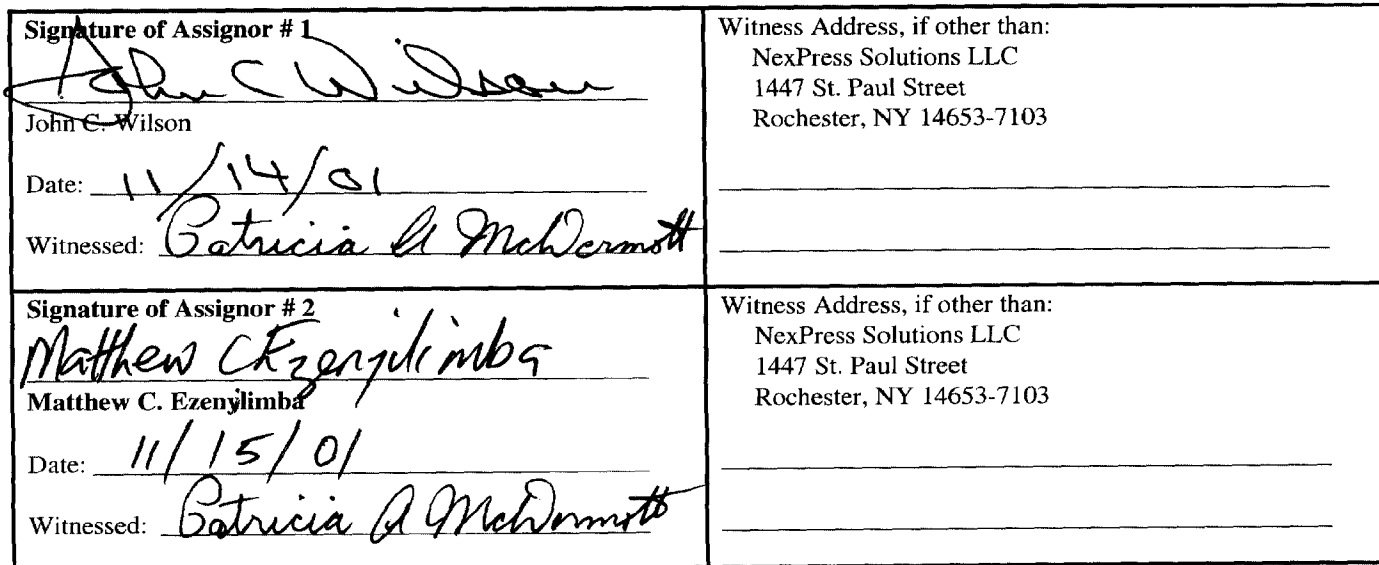 Signature of Assignor # 1
John C Wilson
John C. Wilson
Date: 11/14/01
Witnessed: Patricia A McDermott
Witness Address, if other than:
NexPress Solutions LLC
1447 St. Paul Street
Rochester, NY 14653-7103
Signature of Assignor # 2
Matthew C Ezenyilimba
Matthew C. Ezenyilimba
Date: 11/15/01
Witnessed: Patricia A McDermott
Witness Address, if other than:
NexPress Solutions LLC
1447 St. Paul Street
Rochester, NY 14653-7103